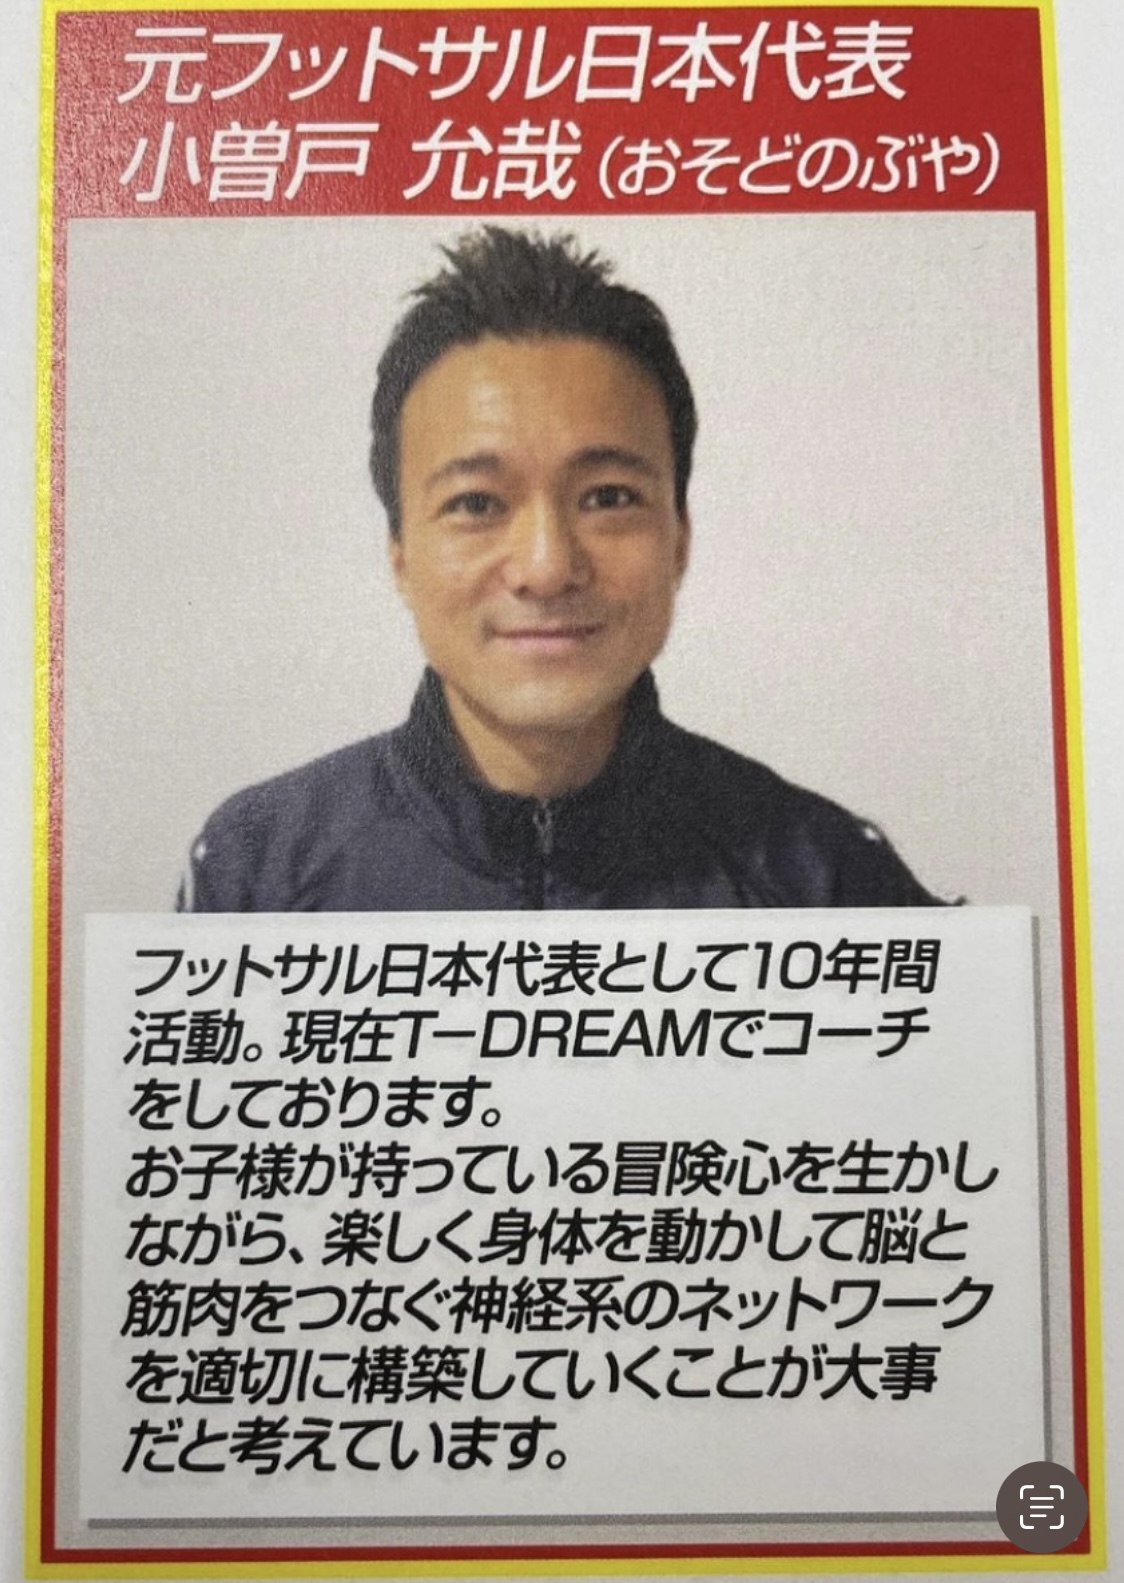 元フットサル日本代表
小曽戸 允哉（おそどのぶや）
フットサル日本代表として10年間
活動。現在T－DREAMでコーチ
をしております。
お子様が持っている冒険心を生かし
ながら、楽しく身体を動かして脳と
筋肉をつなぐ神経系のネットワーク
を適切に構築していくことが大事
だと考えています。